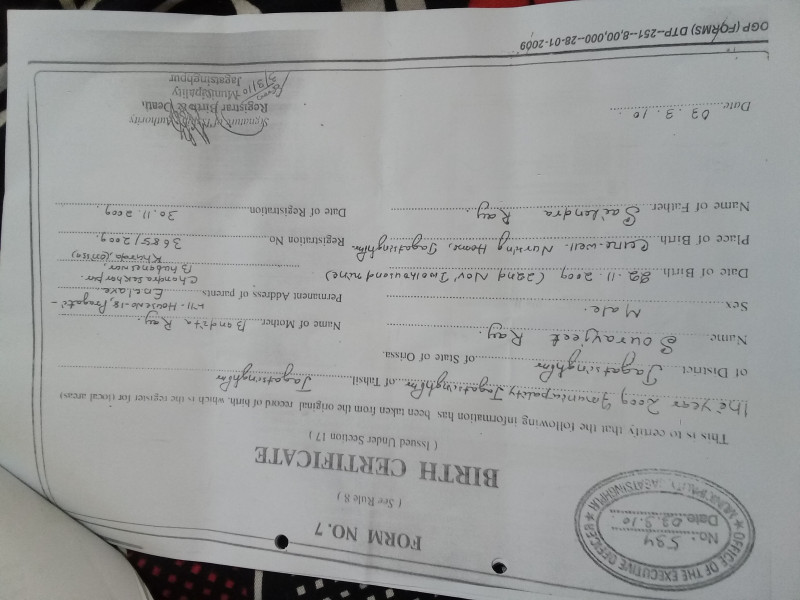 FORM NO. 7
( See Rule 8 )
BIRTH CERTIFICATE
( Issued Under Section 17 )
OFFICE OF THE EXECUTIVE OFFICER
MUNICIPALITY JAGATSINGHPUR
No: 534
Date 03.3.10
This is to certify that the following information has been taken from the original record of birth, which is the register for (local areas)
the year 2009 Jagatsinghpur of Tahsil Jagatsinghpur
of District Jagatsinghpur of State of Orissa.
Name Souravjeet Ray.
Sex Male.
Date of Birth 22.11.2009 (22nd Nov' Two thousand nine)
Place of Birth Cure-well Nursing Home, Jagatsinghpur.
Name of Father Sailendra Ray.
Name of Mother Bandita Ray
Permanent Address of parents House No-18, Pragati-
Enclave.
Chandra Sekharpur
Bhubaneswar,
Khurda, (orissa)
Registration No. 3685/2009.
Date of Registration 30.11.2009.
Date 03.3.10.
Signature of Authority
Registrar Birth & Death
Municipality
Jagatsinghpur
3/3/10
OGP (FORMS) DTP--251--8,00,000--28-01-2009